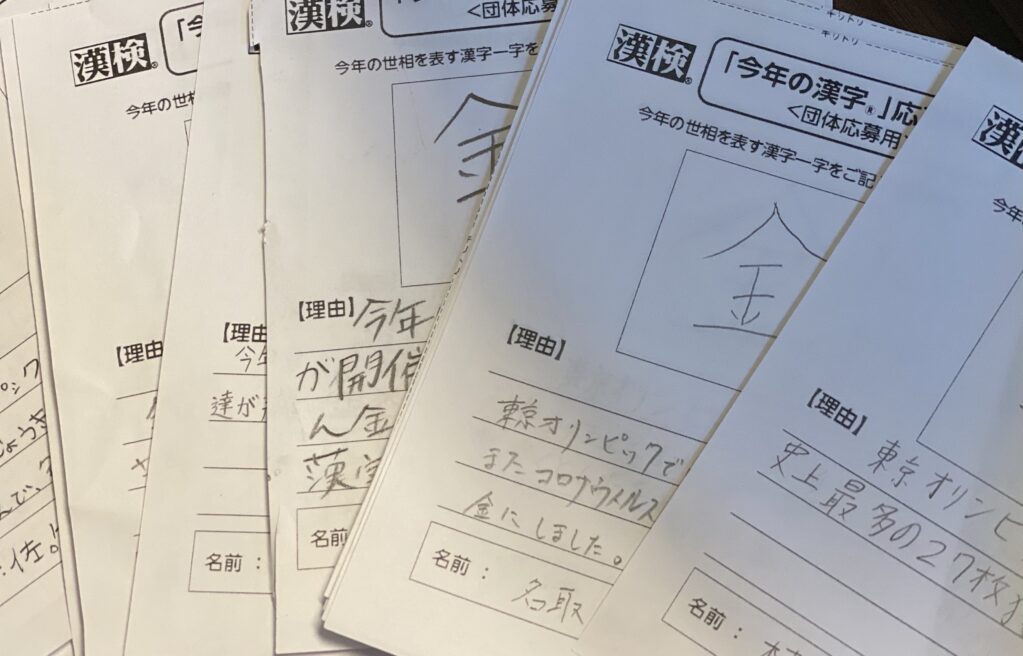 漢検
「今
今年の世相
【理由
漢検
【理由
今年
達が
名前：
漢検
<団体応募
今年の世相を表す漢字一字を
金
【理由】今年
が開催
ん金
漢字
名前
キリトリ
キリトリ
漢検
「今年の漢字®」応
<団体応募用
今年の世相を表す漢字一字をご記
金
【理由】
東京オリンピックで
またコロナウイルス
金にしました。
名前： 名取
漢検
今年
【理由】
東京オリンピ
史上最多の27枚獲
名前：